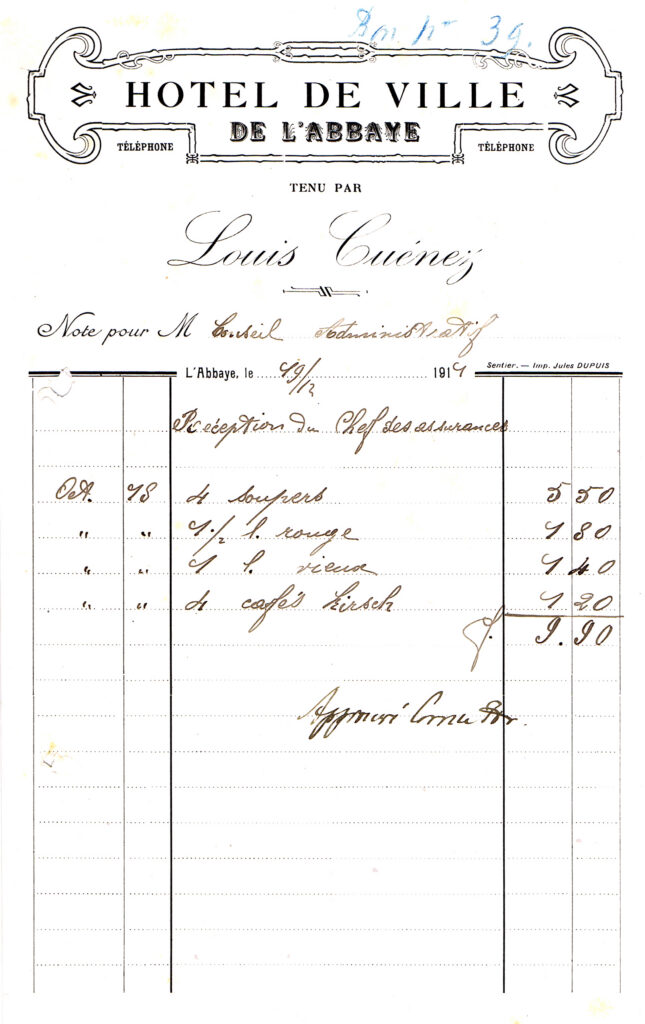 Bon No 39.
HOTEL DE VILLE
DE L'ABBAYE
TÉLÉPHONE TÉLÉPHONE
TENU PAR
Louis Cuénez
Note pour M Conseil Administratif
L'Abbaye, le 19/12 1914
Sentier. — Imp. Jules DUPUIS
Réception du Chef des assurances
Oct. 18 4 soupers 5 50
" " 1 1/2 l. rouge 1 80
" " 1 l. vieux 1 40
" " 4 cafés kirsch 1 20
f. 9.90
Approuvé